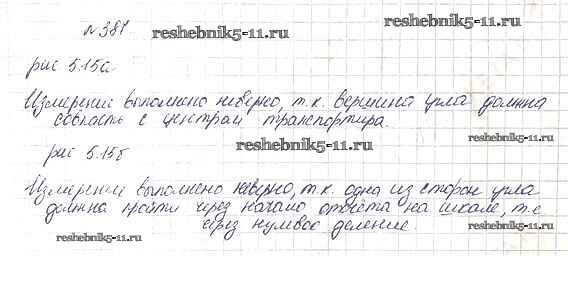 № 381
reshebnik5-11.ru
reshebnik5-11.ru
рис 5.15а
Измерение выполнено неверно, т.к. вершина угла должна
совпасть с центрам транспортира.
рис 5.15б
reshebnik5-11.ru
reshebnik5-11.ru
Измерение выполнено неверно, т.к. одна из сторон угла
должна пройти через начало отчёта на шкале, т.е
через нулевое деление.
reshebnik5-11.ru
reshebnik5-11.ru